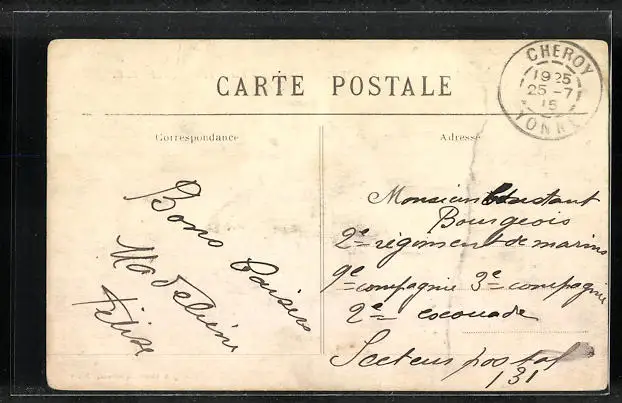 CARTE POSTALE
CHEROY
19 25
25 -7
15
YONNE
Correspondance
Adresse
Bons baisers
Madeleine
Félise
Monsieur Constant
Bourgeois
2e régiment de marins
9e compagnie 3e compagnie
2e escouade
Secteur postal
131